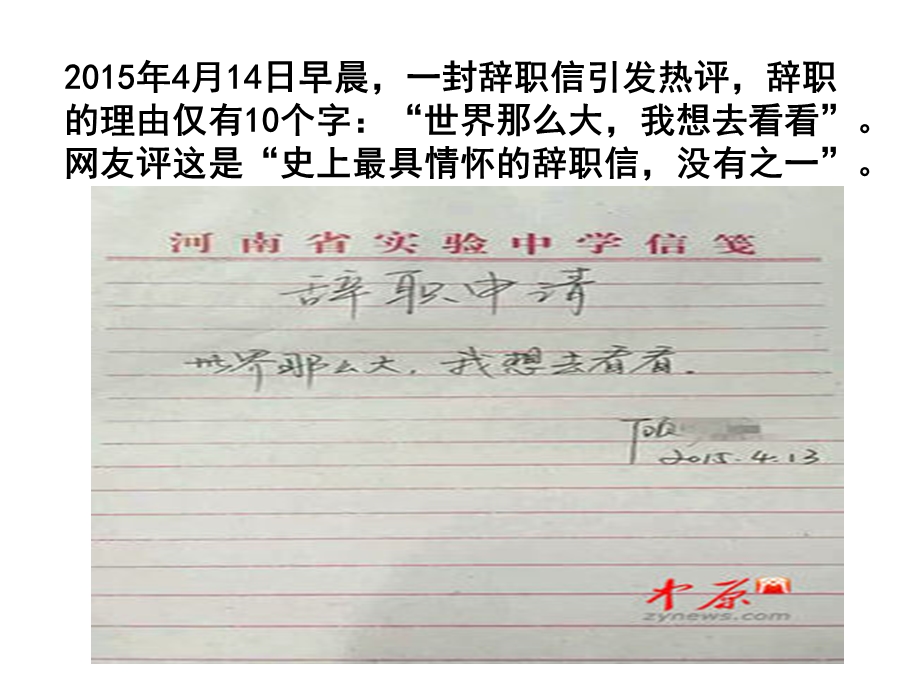 2015年4月14日早晨，一封辞职信引发热评，辞职
的理由仅有10个字：“世界那么大，我想去看看”。
网友评这是“史上最具情怀的辞职信，没有之一”。
河南省实验中学信笺
辞职申请
世界那么大，我想去看看。
2015.4.13
中原
zynews.com